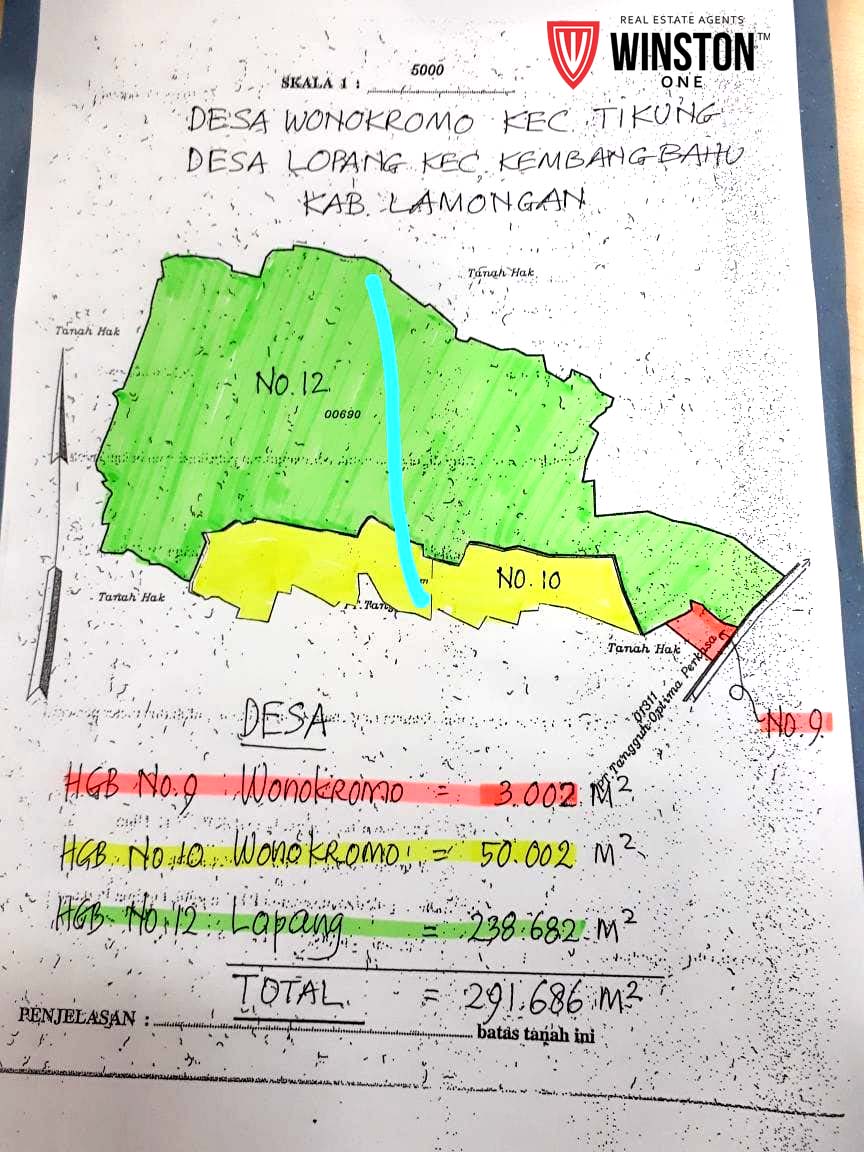 REAL ESTATE AGENTS
WINSTON™
ONE
SKALA 1 : 5000
DESA WONOKROMO KEC TIKUNG
DESA LOPANG KEC. KEMBANGBAHU
KAB. LAMONGAN
Tanah Hak
Tanah Hak
NO.12
00690
NO.10
Tanah Hak
Tanah Hak
01311
PT. Tangguh Optima Perkasa
NO 9
DESA
HGB NO.9 WONOKROMO = 3.002 M²
HGB NO.10 WONOKROMO = 50.002 M²
HGB NO.12 Lapang = 238.682 M²
TOTAL = 291.686 M²
PENJELASAN : batas tanah ini